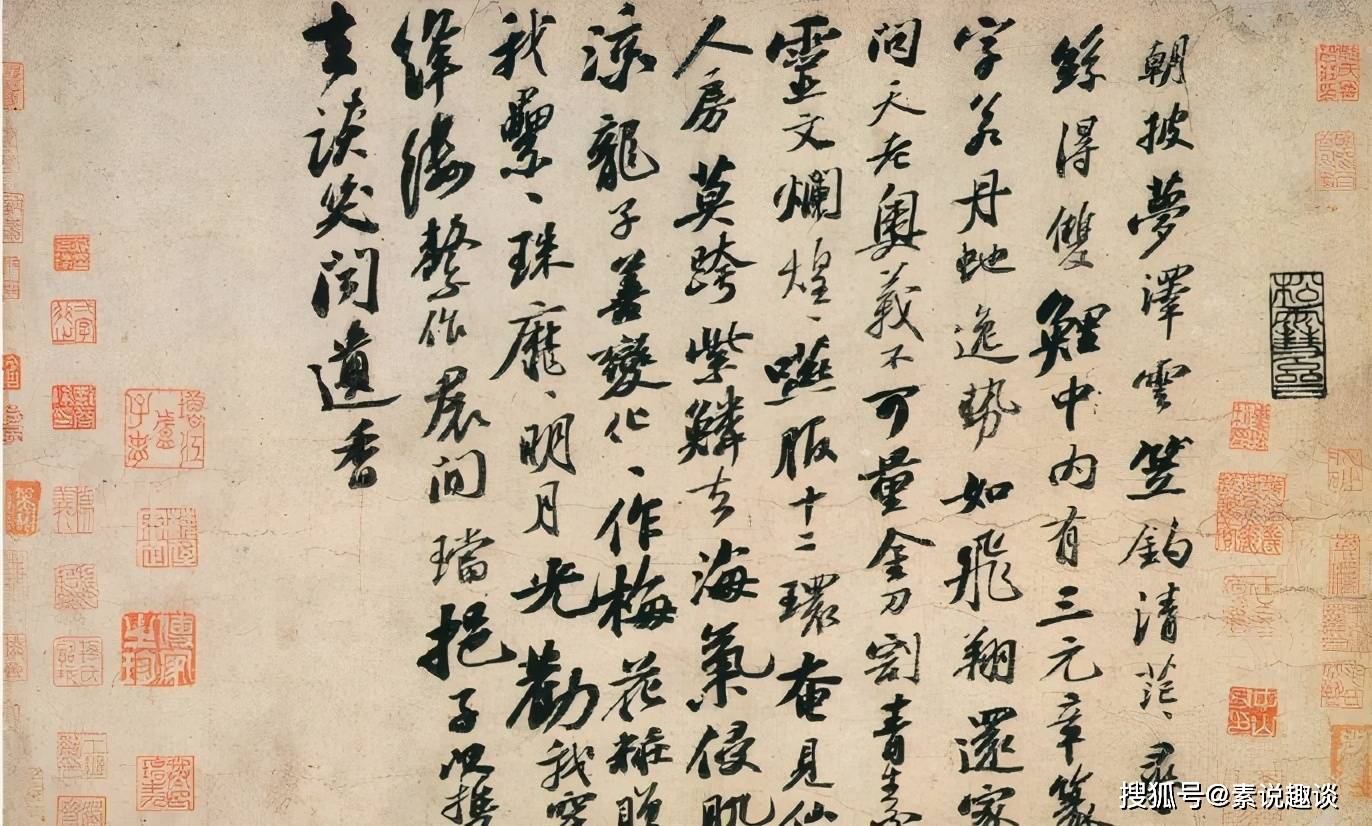 朝披夢澤雲笠釣清茫、尋
絲得雙鯉中內有三元章篆
字若丹虵逸勢如飛翔還家
問天老奧義不可量金刀割青素
靈文爛煌、嚥服十二環奄見仙
人房莫跨紫鱗去海氣侵肌
涼龍子善變化、作梅花粧贈
我纍、珠靡、明月光勸我穿
絳縷繫作裙間璫挹子以攜
去談笑聞遺香
搜狐号@素说趣谈